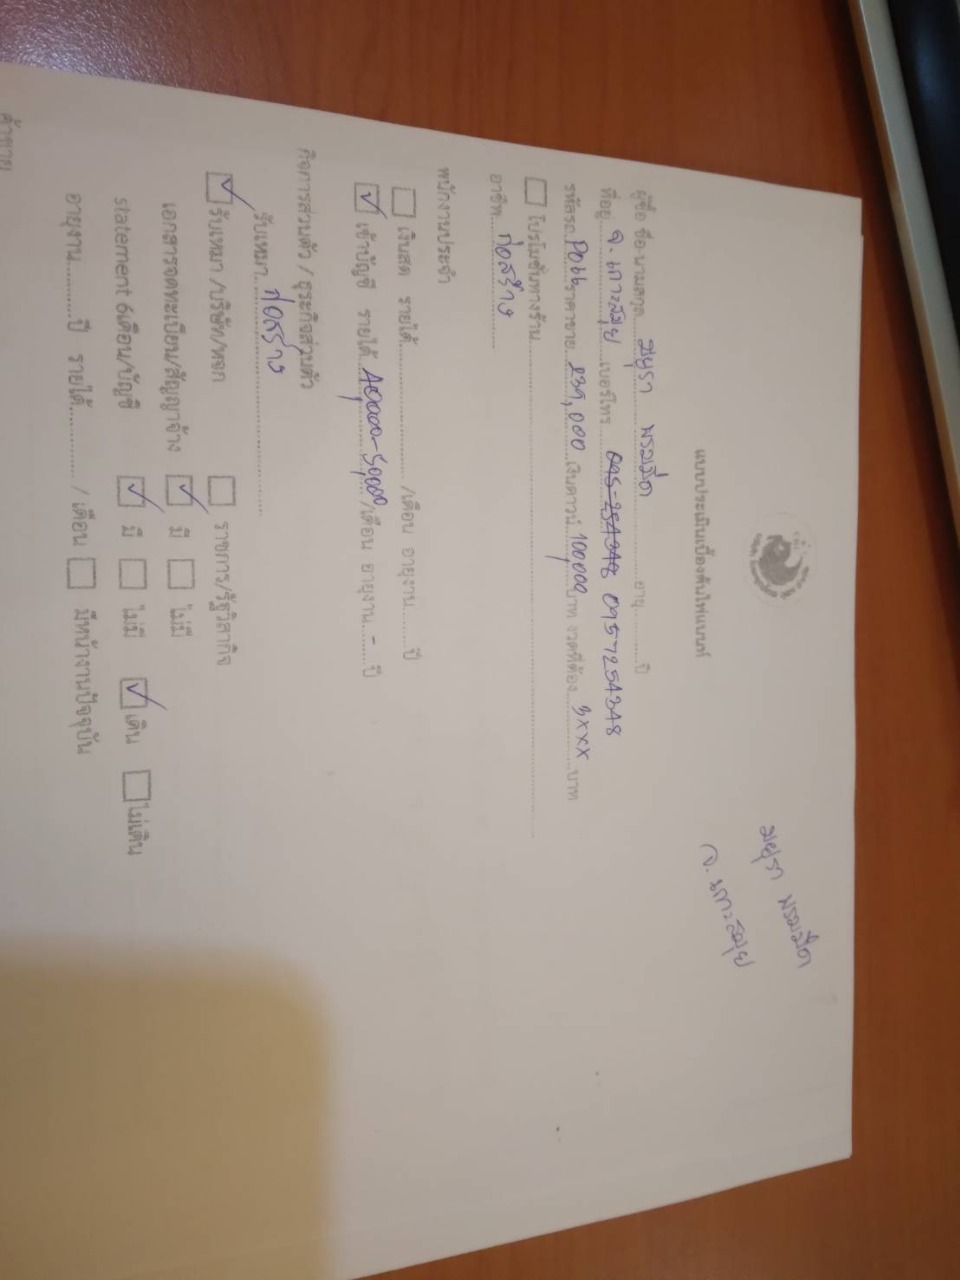 แบบประเมินเบื้องต้นไฟแนนท์
ผู้ซื้อ ชื่อ-นามสกุล มยุรา พรมมืด อายุ ปี
ที่อยู่ จ. เกาะสมุย เบอร์โทร 095-254348 0957254348
รหัสรถ ราคาขาย 239,000 เงินดาวน์ 100,000 บาท งวดที่ต้อง 3xxx บาท
โปรโมชั่นทางร้าน
อาชีพ ก่อสร้าง
พนักงานประจำ
เงินสด รายได้ /เดือน อายุงาน ปี
เข้าบัญชี รายได้ 40,000-50,000 /เดือน อายุงาน - ปี
กิจการส่วนตัว / ธุระกิจส่วนตัว
รับเหมา ก่อสร้าง
รับเหมา /บริษัท/หจก ราชการ/รัฐวิสากิจ
เอกสารจดทะเบียน/สัญญาจ้าง มี ไม่มี
statement 6เดือน/บัญชี มี ไม่มี เดิน ไม่เดิน
อายุงาน ปี รายได้ / เดือน มีหน้างานปัจจุบัน
มยุรา พรมมืด
จ. เกาะสมุย